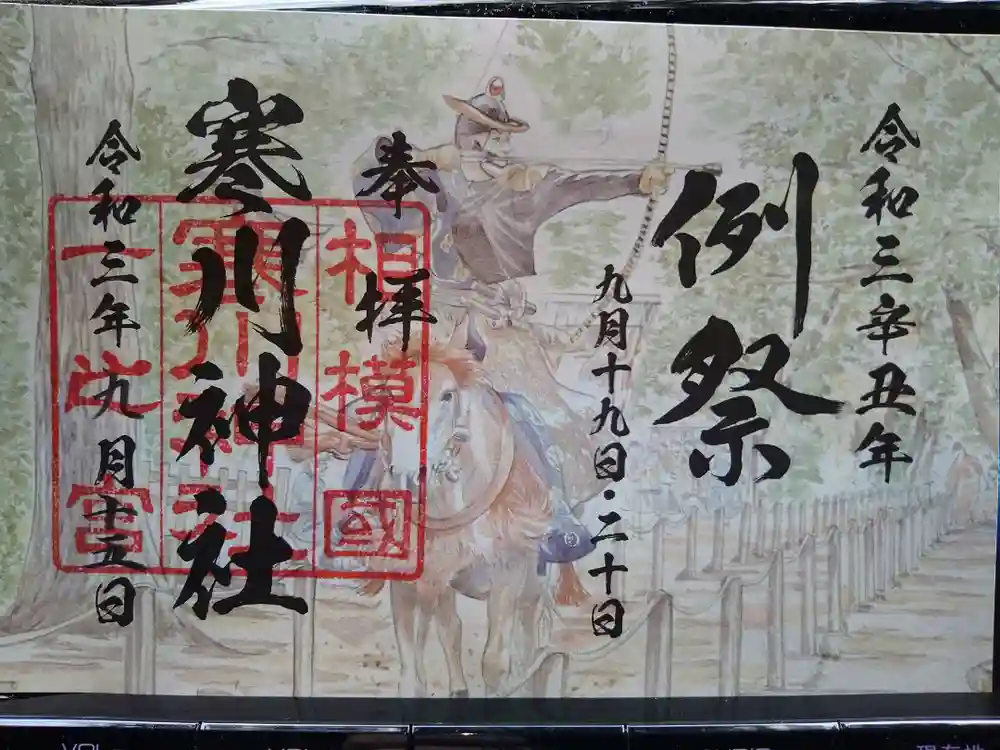 令和三辛丑年
例祭
九月十九日・二十日
奉拝
相模國
寒川神社
寒川神社
一之宮
令和三年九月十五日
現在地